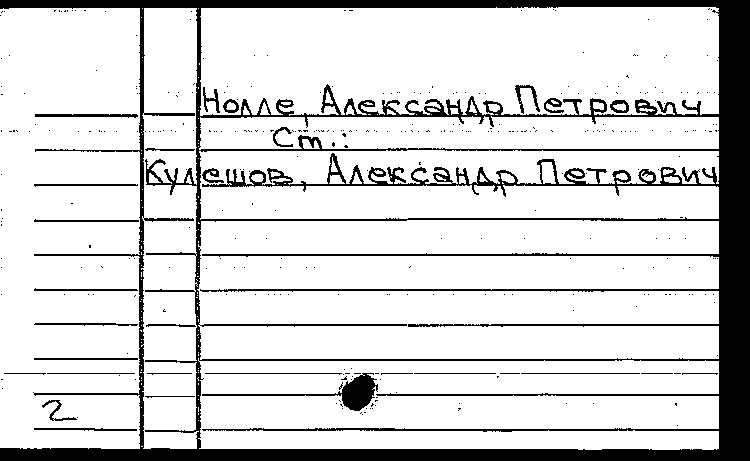 Нолле, Александр Петрович
Ст.:
Кулешов, Александр Петрович
2